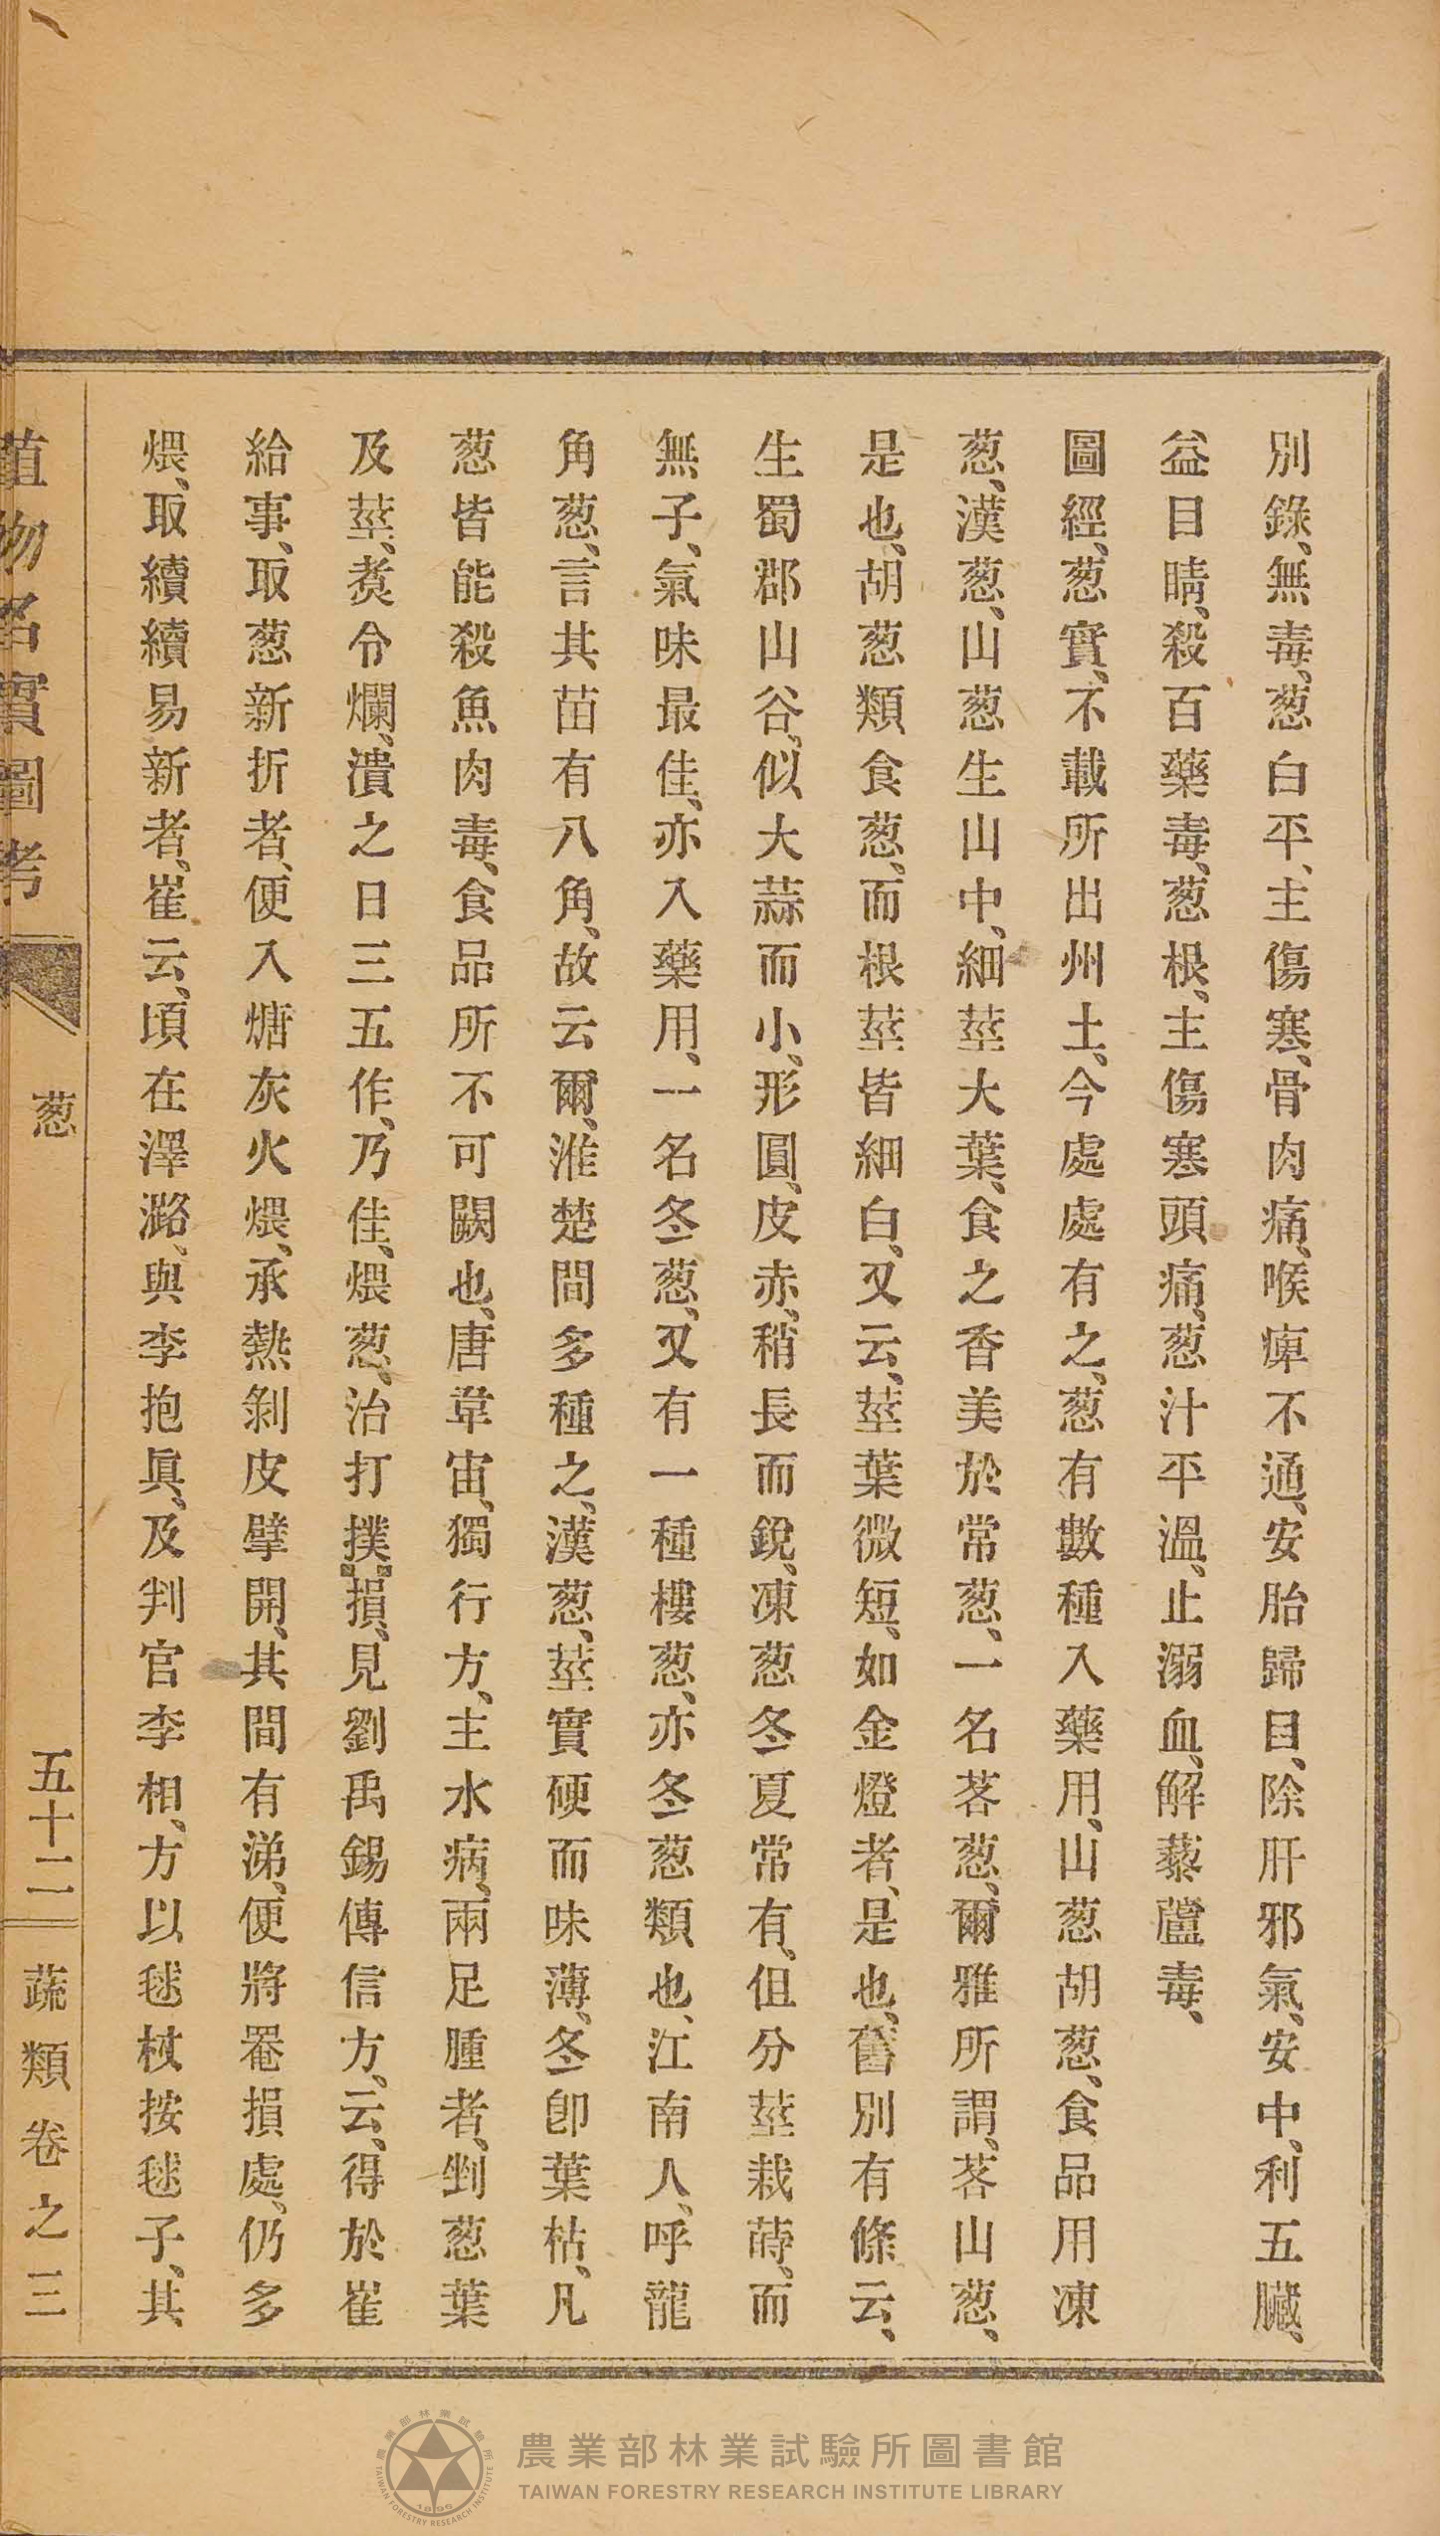 別錄、無毒、葱白平、主傷寒、骨肉痛、喉痺不通、安胎歸目、除肝邪氣、安中、利五臟、
益目睛、殺百藥毒、葱根、主傷寒頭痛、葱汁平溫、止溺血、解藜蘆毒、
圖經、葱實、不載所出州土、今處處有之、葱有數種入藥用、山葱胡葱、食品用凍
葱、漢葱、山葱生山中、細莖大葉、食之香美於常葱、一名茖葱、爾雅所謂、茖山葱、
是也、胡葱類食葱、而根莖皆細白、又云、莖葉微短、如金燈者、是也、舊別有條云、
生蜀郡山谷、似大蒜而小、形圓、皮赤、稍長而銳、凍葱冬夏常有、但分莖栽蒔、而
無子、氣味最佳、亦入藥用、一名冬葱、又有一種樓葱、亦冬葱類也、江南人、呼龍
角葱、言其苗有八角、故云爾、淮楚間多種之、漢葱、莖實硬而味薄、冬卽葉枯、凡
葱皆能殺魚肉毒、食品所不可闕也、唐韋宙、獨行方、主水病、兩足腫者、剉葱葉
及莖、煑令爛、漬之日三五作、乃佳、煨葱、治打撲損、見劉禹錫傳信方、云、得於崔
給事、取葱新折者、便入煻灰火煨、承熱剝皮擘開、其間有涕、便將罨損處、仍多
煨、取續續易新者、崔云、頃在澤潞、與李抱眞、及判官李相、方以毬杖按毬子、其
植物名實圖考
葱
五十二
蔬類卷之三
農業部林業試驗所圖書館
TAIWAN FORESTRY RESEARCH INSTITUTE LIBRARY
農業部林業試驗所
TAIWAN FORESTRY RESEARCH INSTITUTE
1895